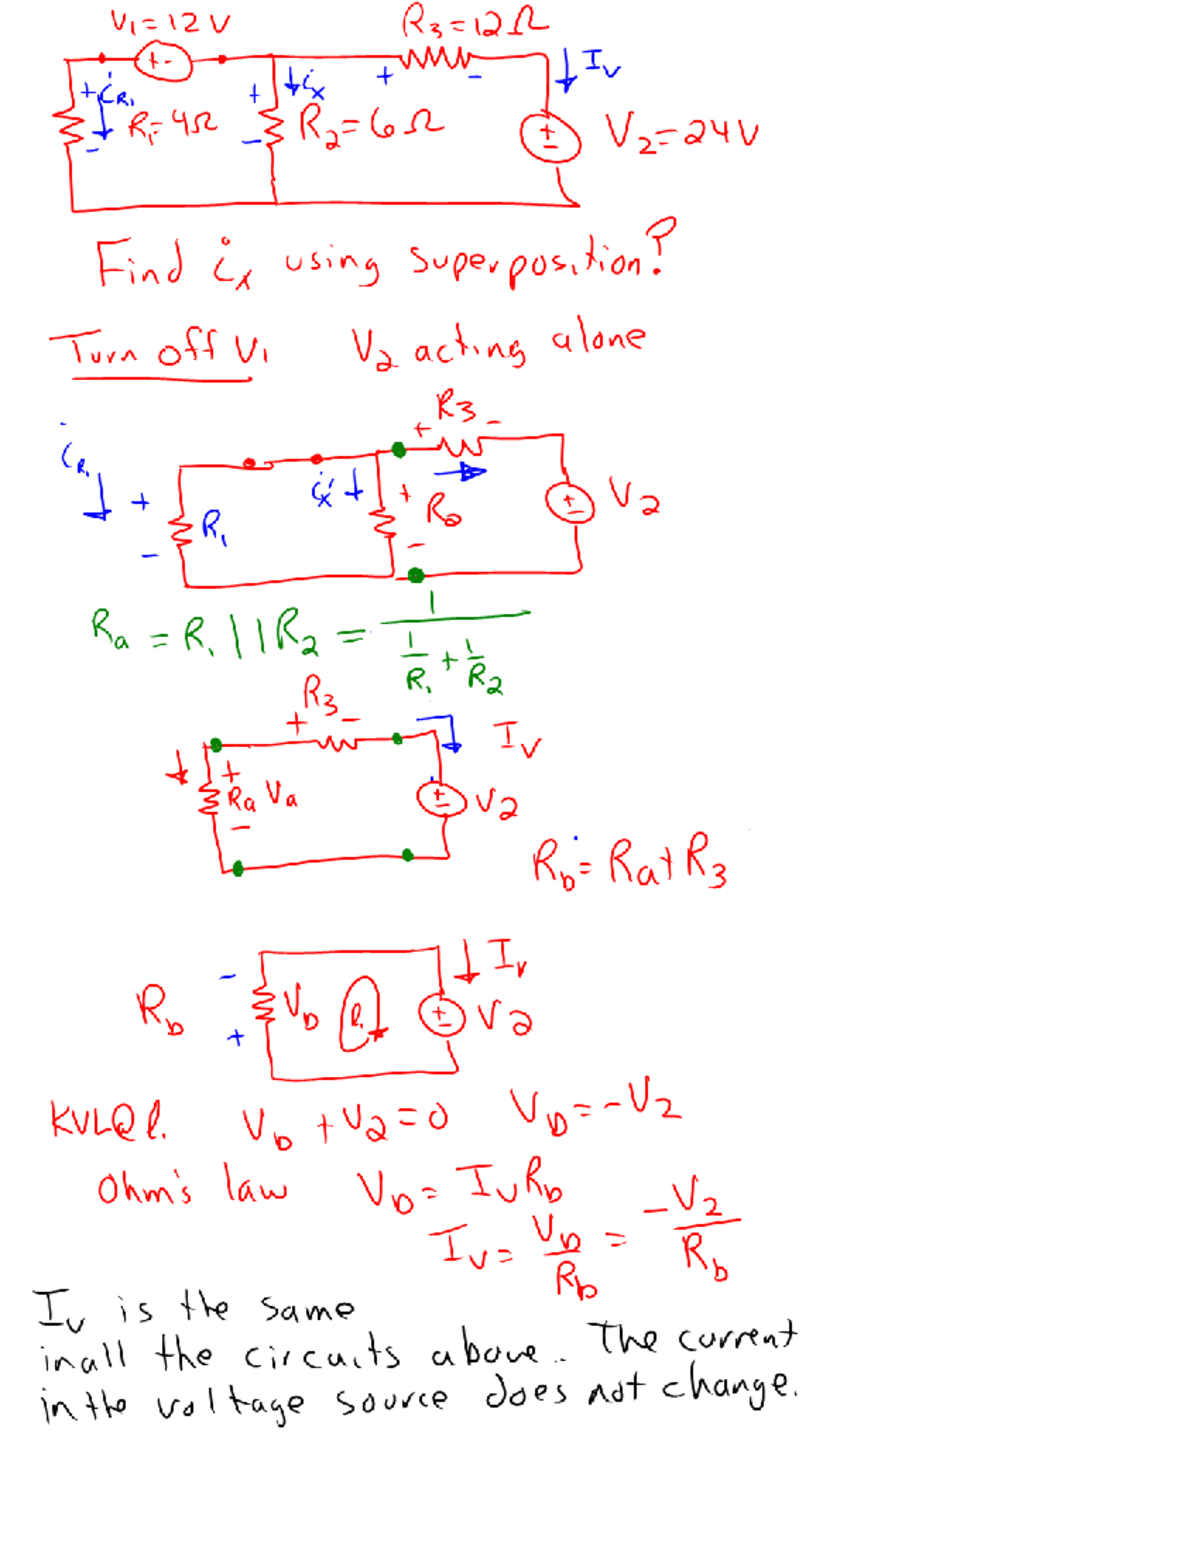 V1=12V R3=12Ω
+ -
+ iR1 R1=4Ω + ix R2=6Ω + - Iv
- - + - V2=24V
Find ix using superposition?
Turn off V1 V2 acting alone
R3
+ -
iR1 + R1 - ix' + R2 - + - V2
Ra = R1 || R2 = 1 / (1/R1 + 1/R2)
R3
+ - Iv
+ Ra Va - + - V2
Rb = Ra + R3
Iv
Rb - + Vb l. + - V2
KVL@l. Vb + V2 = 0 Vb = -V2
Ohm's law Vb = Iv Rb
Iv = Vb/Rb = -V2/Rb
Iv is the same
in all the circuits above.. The current
in the voltage source does not change.